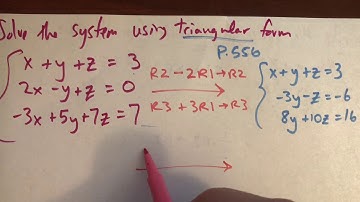 Solve the system using triangular form
P.556
x + y + z = 3
2x - y + z = 0
-3x + 5y + 7z = 7
R2 - 2R1 → R2
R3 + 3R1 → R3
x + y + z = 3
-3y - z = -6
8y + 10z = 16